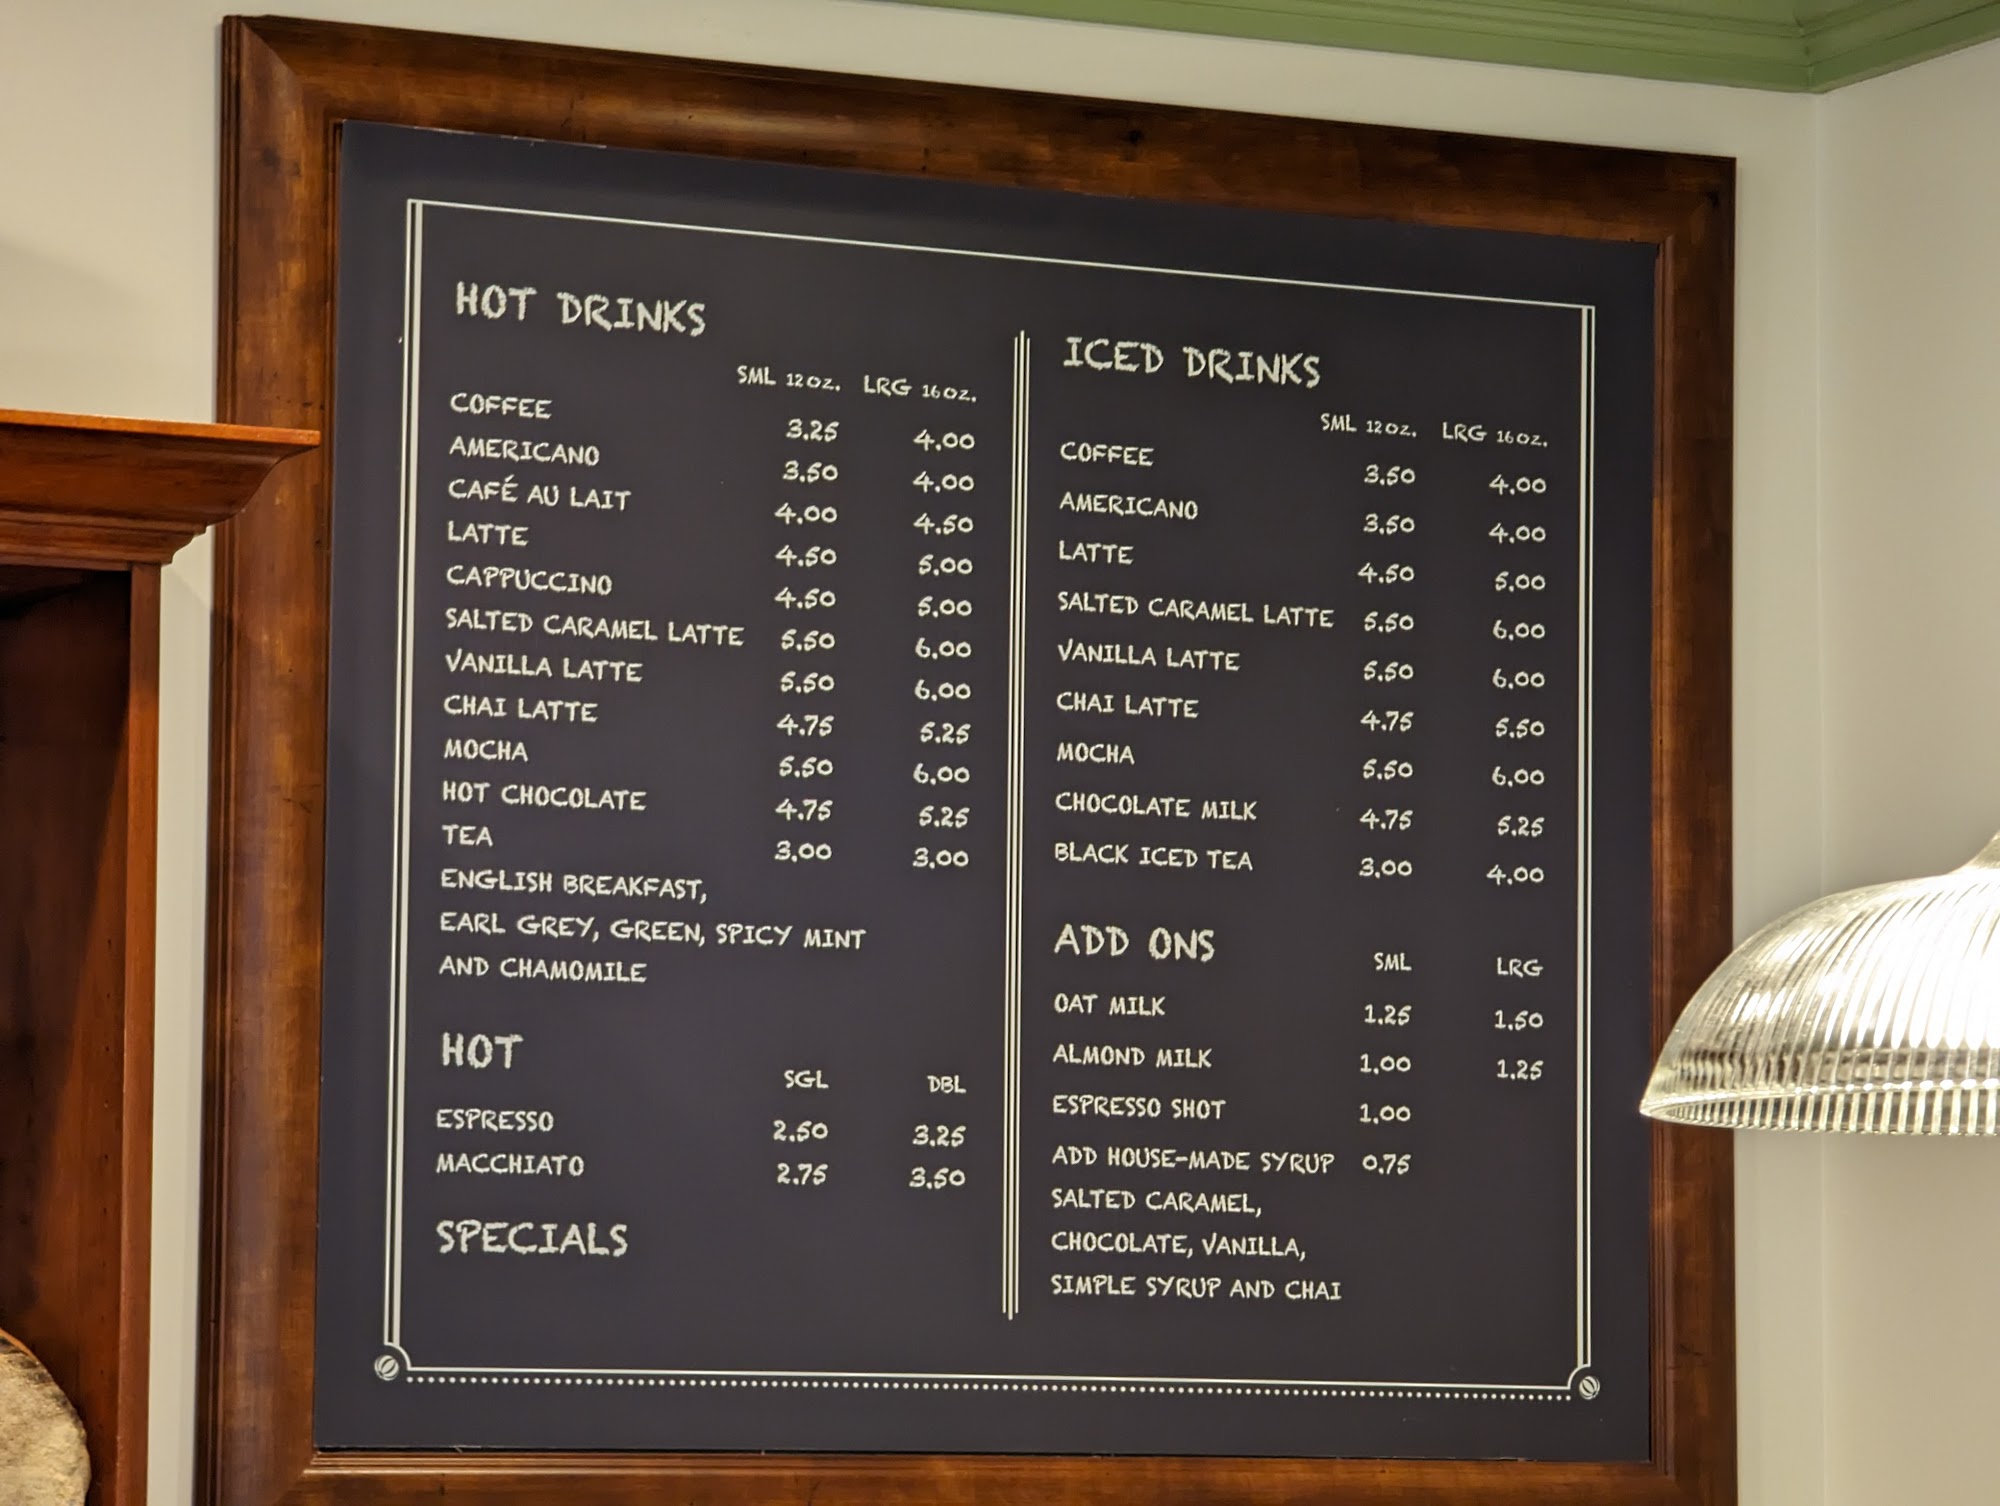 HOT DRINKS
SML 12 OZ. LRG 16 OZ.
COFFEE 3.25 4.00
AMERICANO 3.50 4.00
CAFÉ AU LAIT 4.00 4.50
LATTE 4.50 5.00
CAPPUCCINO 4.50 5.00
SALTED CARAMEL LATTE 5.50 6.00
VANILLA LATTE 5.50 6.00
CHAI LATTE 4.75 5.25
MOCHA 5.50 6.00
HOT CHOCOLATE 4.75 5.25
TEA 3.00 3.00
ENGLISH BREAKFAST,
EARL GREY, GREEN, SPICY MINT
AND CHAMOMILE
HOT
SGL DBL
ESPRESSO 2.50 3.25
MACCHIATO 2.75 3.50
SPECIALS
ICED DRINKS
SML 12 OZ. LRG 16 OZ.
COFFEE 3.50 4.00
AMERICANO 3.50 4.00
LATTE 4.50 5.00
SALTED CARAMEL LATTE 5.50 6.00
VANILLA LATTE 5.50 6.00
CHAI LATTE 4.75 5.50
MOCHA 5.50 6.00
CHOCOLATE MILK 4.75 5.25
BLACK ICED TEA 3.00 4.00
ADD ONS SML LRG
OAT MILK 1.25 1.50
ALMOND MILK 1.00 1.25
ESPRESSO SHOT 1.00
ADD HOUSE-MADE SYRUP 0.75
SALTED CARAMEL,
CHOCOLATE, VANILLA,
SIMPLE SYRUP AND CHAI